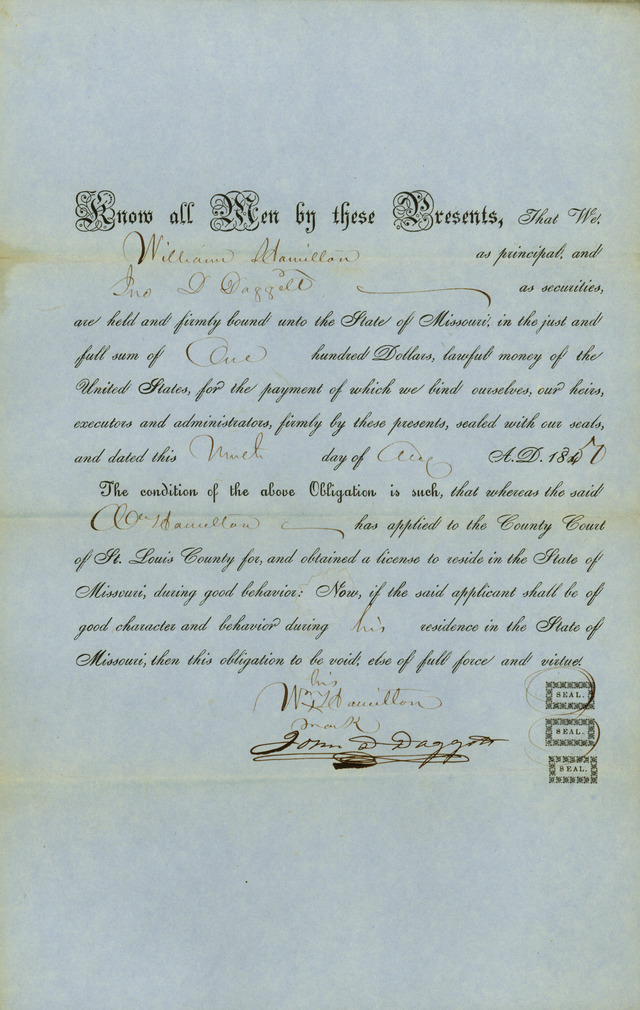 Know all Men by these Presents, That We,
William Hamilton as principal, and
Jno D Daggett as securities,
are held and firmly bound unto the State of Missouri, in the just and
full sum of One hundred Dollars, lawful money of the
United States, for the payment of which we bind ourselves, our heirs,
executors and administrators, firmly by these presents, sealed with our seals,
and dated this Ninth day of Aug A.D. 1850
The condition of the above Obligation is such, that whereas the said
Wm Hamilton has applied to the County Court
of St. Louis County for, and obtained a license to reside in the State of
Missouri, during good behavior: Now, if the said applicant shall be of
good character and behavior during his residence in the State of
Missouri, then this obligation to be void, else of full force and virtue.
his
Wm X Hamilton SEAL.
mark
John D Daggett SEAL.
SEAL.